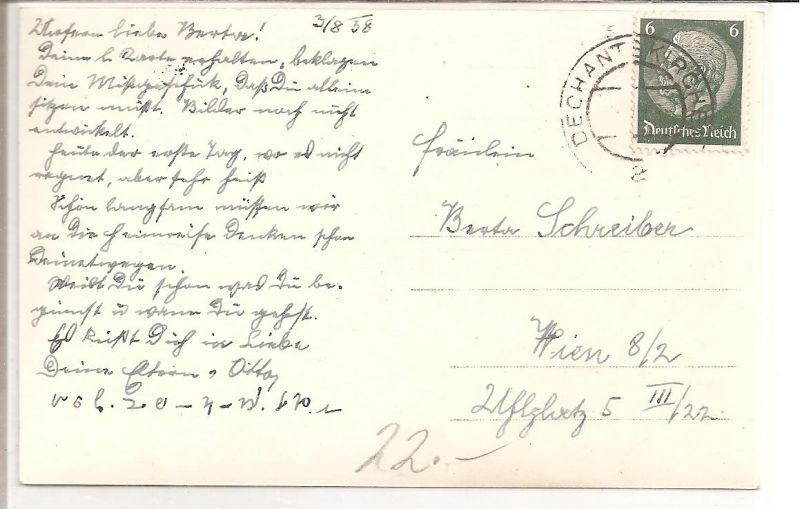 3/8 38
Unsere liebe Berta!
Deine l. Karte erhalten, beklagen
Dein Mißgeschick, daß Du allein
sitzen mußt. Bilder noch nicht
entwickelt.
Heute der erste Tag, wo es nicht
regnet, aber sehr heiß
Schön langsam müssen wir
an die Heimreise denken schon
Deinetwegen.
Weißt Du schon was Du be-
ginnst u wann Du gehst.
Es küßt Dich in Liebe
Deine Eltern, Otto
6 6
Deutsches Reich
DECHANTSKIRCHEN
Fräulein
Berta Schreiber
Wien 8/2
Uhlplatz 5 III/22
22.-